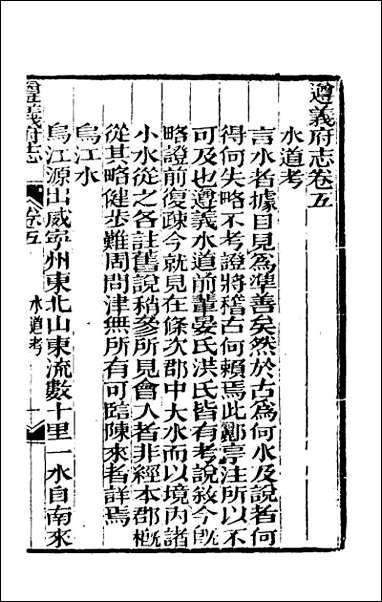 遵義府志卷五
水道考
言水者據目見為準善矣然於古為何水及說者何
得何失略不考證將稽古何賴焉此酈亭注所以不
可及也遵義水道前輩晏氏洪氏皆有考說敘今旣
略證前復疎今就見在條次郡中大水而以境內諸
小水從之各註舊說稍參所見會入者非經本郡概
從其略健步難周問津無所有可臨陳來者詳焉
烏江水
烏江源出威寧州東北山東流數十里一水自南來
遵義府志
卷五
水道考
一